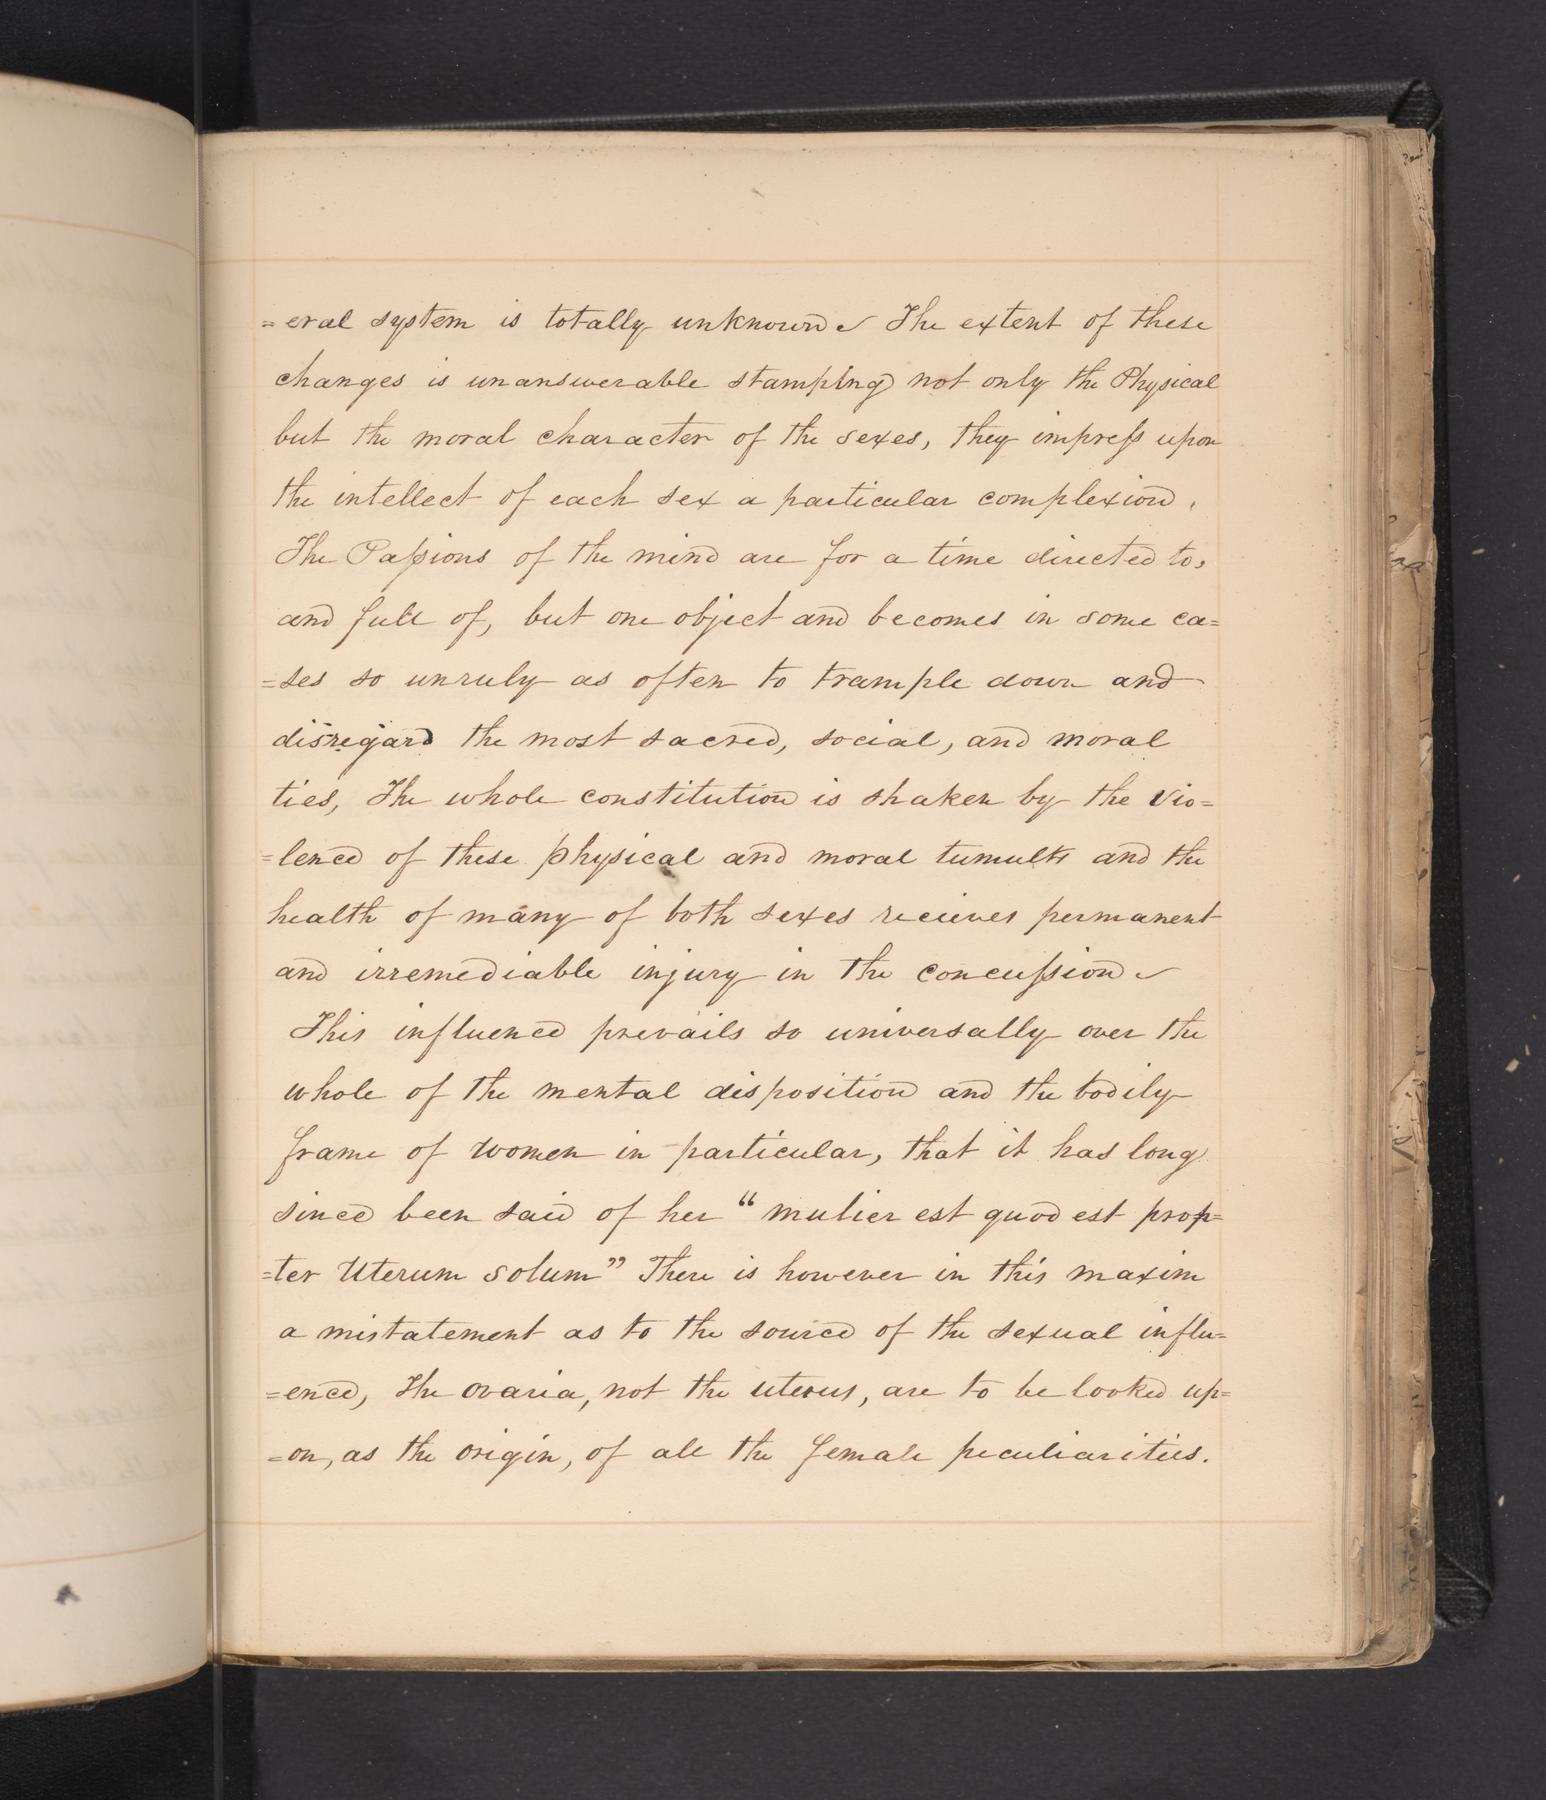 =eral system is totally unknown The extent of these
changes is unanswerable stamping not only the Physical
but the moral character of the sexes, they impress upon
the intellect of each sex a particular complexion,
The Passions of the mind are for a time directed to,
and full of, but one object and becomes in some ca=
=ses so unruly as often to trample down and
disregard the most sacred, social, and moral
ties, The whole constitution is shaken by the vio=
=lence of these physical and moral tumults and the
health of many of both sexes recieves permanent
and irremediable injury in the concussion
This influence prevails so universally over the
whole of the mental disposition and the bodily
frame of women in particular, that it has long
since been said of her "mulier est quod est prop=
=ter Uterum solum" There is however in this maxim
a mistatement as to the source of the sexual influ=
=ence, The ovaria, not the uterus, are to be looked up=
=on, as the origin, of all the female peculiarities.